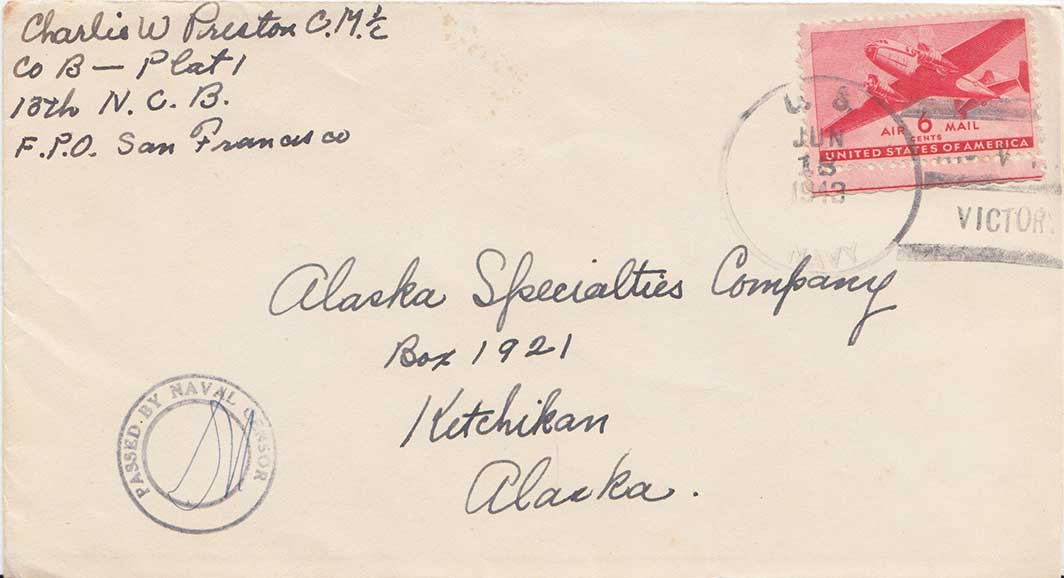 Charlie W Preston C.M. ½
Co B — Plat 1
13th N. C. B.
F.P.O. San Francisco
AIR 6 MAIL
CENTS
UNITED STATES OF AMERICA
U. S.
JUN
1943
NAVY
VICTORY
Alaska Specialties Company
Box 1921
Ketchikan
Alaska.
PASSED BY NAVAL CENSOR